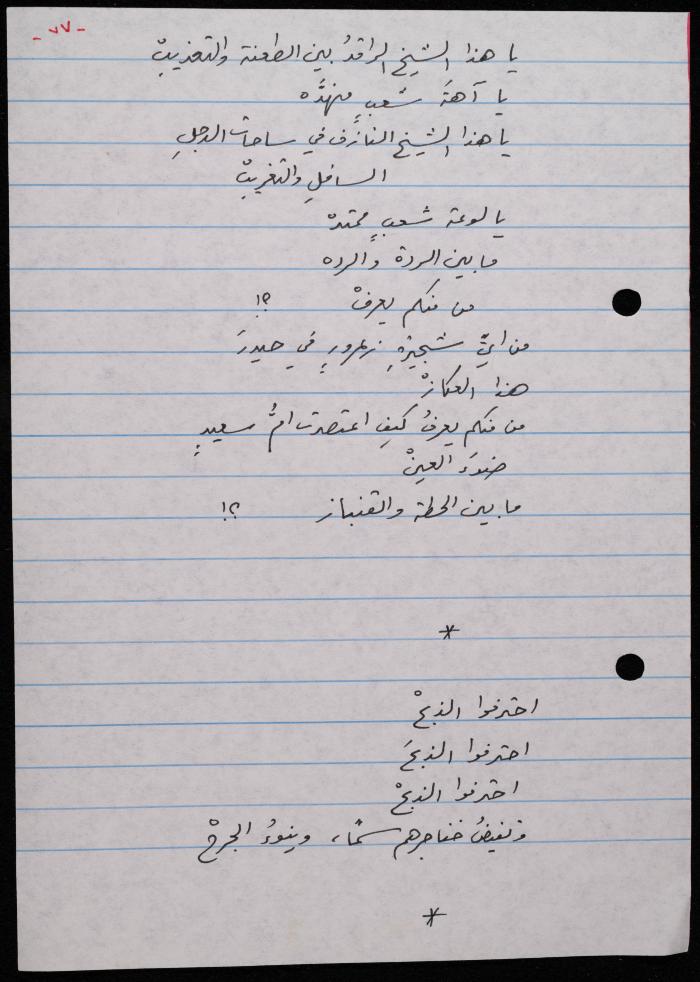 - ٧٧ -
يا هذا الشيخ الراقدُ بين الطعنة والتعذيبْ
يا آهةَ شعبٍ منهدَّه
يا هذا الشيخ النازف في ساحات الدجلِ
السافلِ والتغريبْ
يا لوعة شعبٍ ممتده
ما بين الردة والرده
من منكم يعرفْ ؟!
من ايِّ شجيرةِ زعرورٍ في حيدرَ
هذا العكازْ
من منكم يعرفُ كيف اعتصرت امُّ سعيدٍ
ضوءَ العينْ
ما بين الحطة والقنباز ؟!
*
احترفوا الذبحْ
احترفوا الذبحَ
احترفوا الذبحْ
وتفيضُ خناجرهم سمًّا، وينوءُ الجرحْ
*